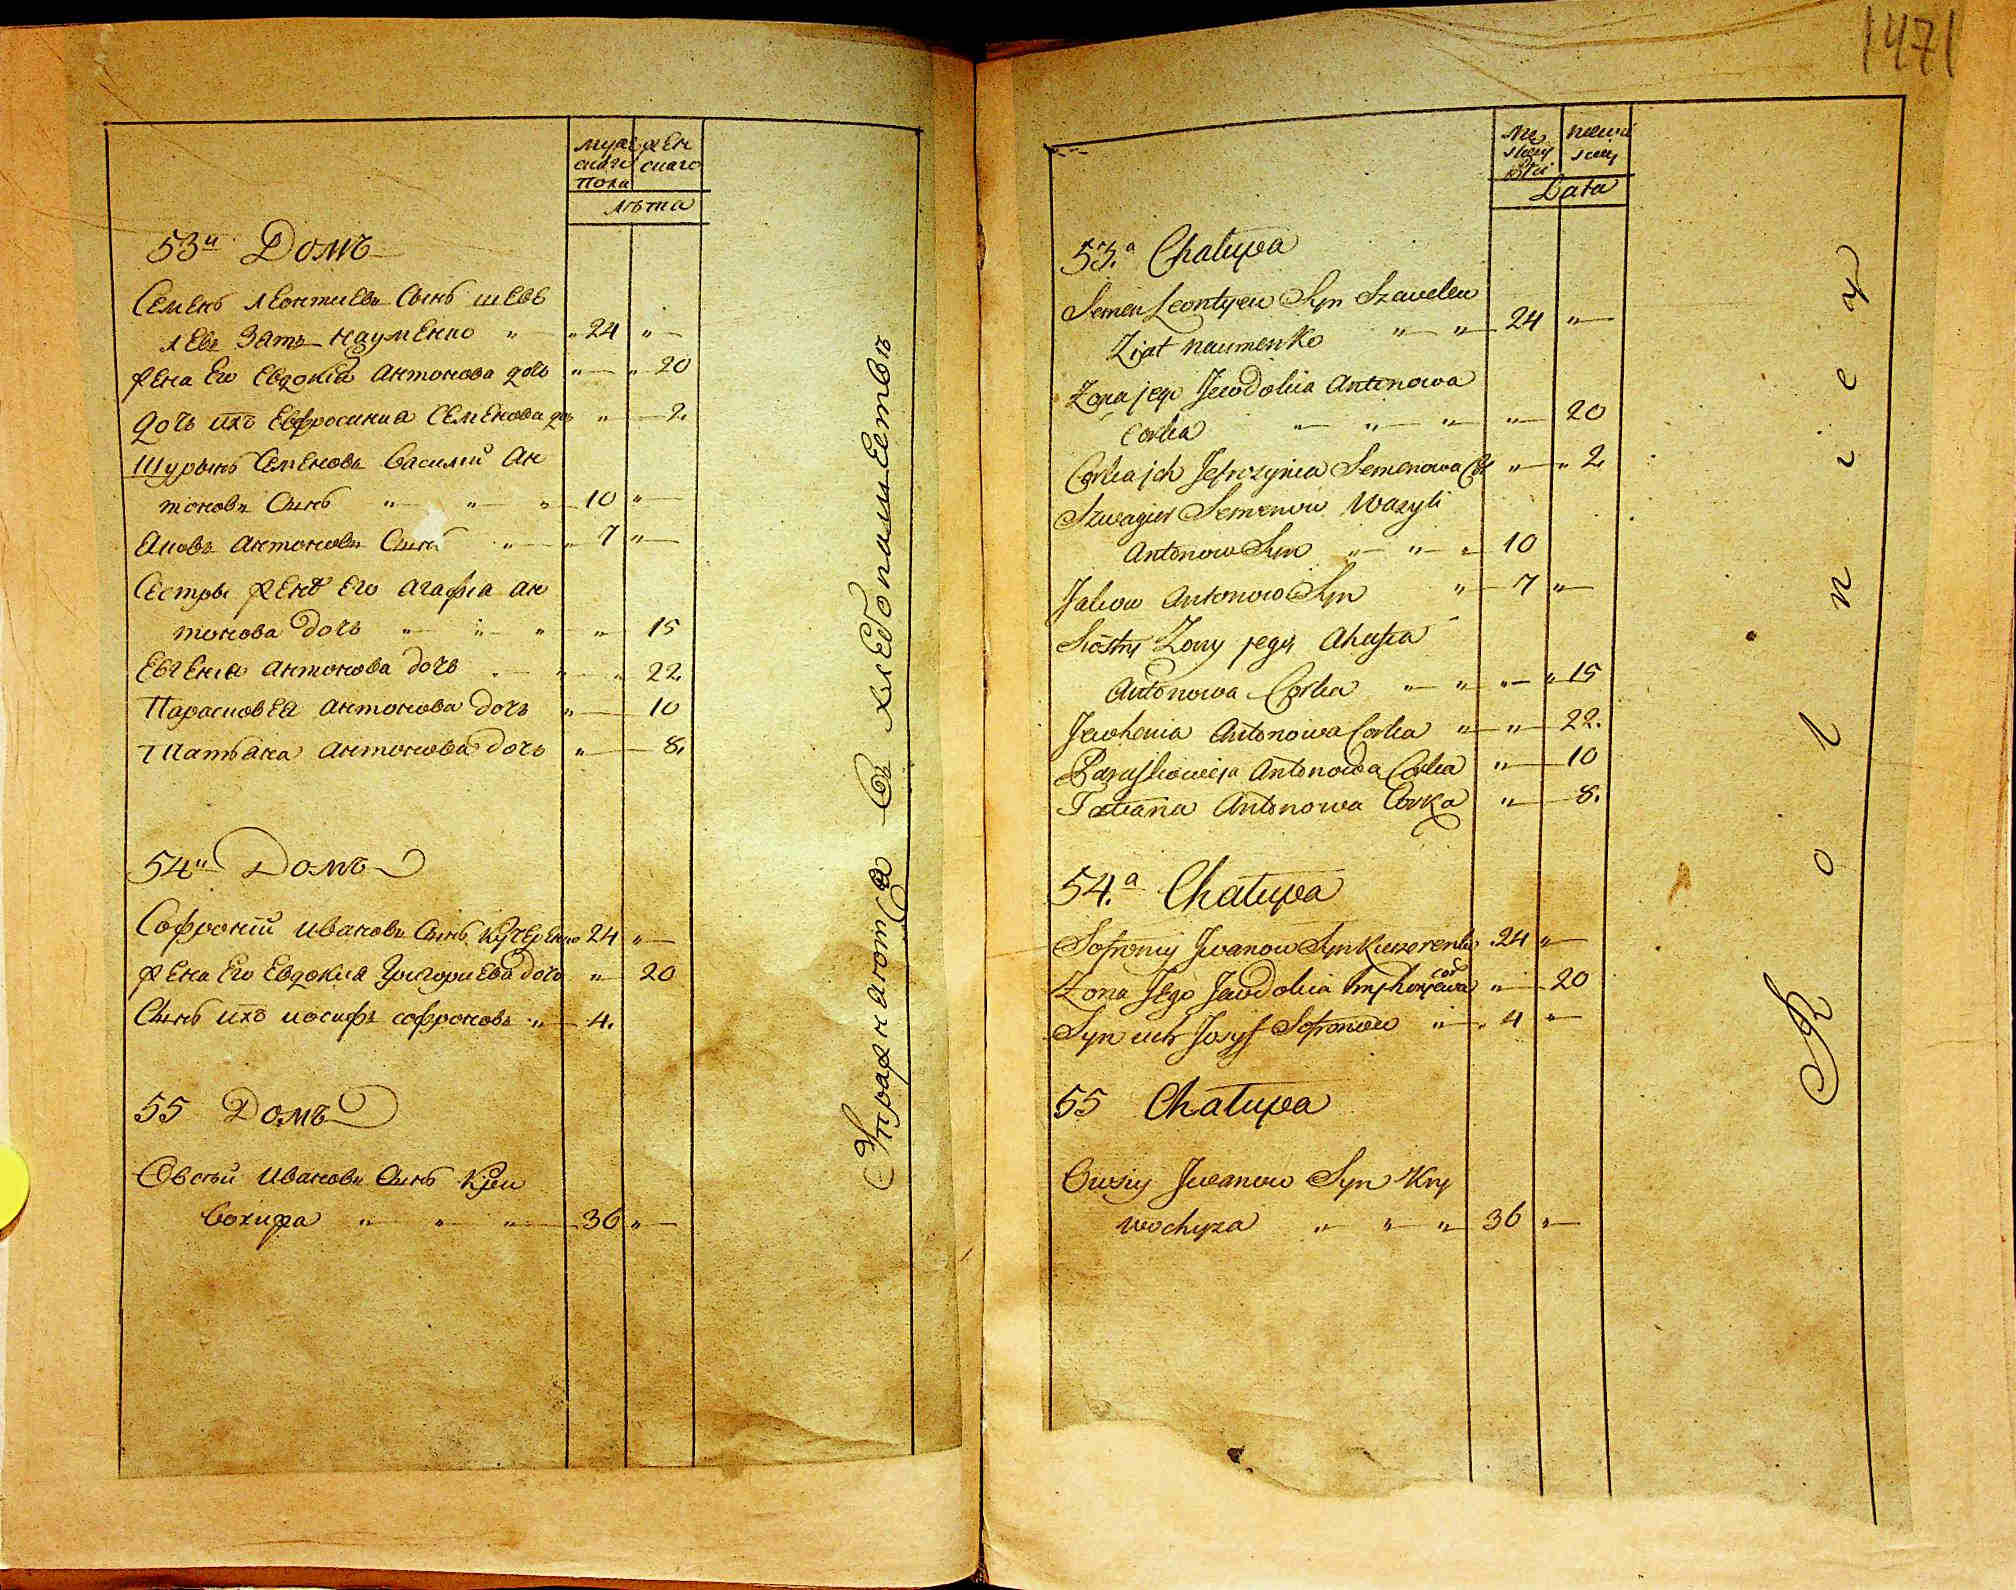 мужескаго пола
женскаго
лѣта
53й Домъ
Семенъ Леонтиевъ Сынъ шеве
левъ Зять Науменко " " 24 "
жена Его Евдокїа Антонова дочь " " 20
дочь ихъ Евфросиниа Семенова дчь " 2.
Шурынъ Семеновъ Василий Ан
тоновъ Сынъ " " " 10 "
Яковъ Антоновъ Сынъ " " 7 "
Сестры женѣ Его Агафиа Ан
тонова дочь " " " " 15
Евгениа Антонова дочь " " " 22.
Парасковеа Антонова дочь " 10
Татьана Антонова дочь " 8.
54й Домъ
Софронїй Ивановъ Сынъ Кучеренко 24 "
жена Его Евдокиа Григориева дочь " 20
Сынъ ихъ иосифъ софроновъ " 4.
55 Домъ
Овсѣй Ивановъ Сынъ Кри
вохижа " " " 36 "
Упражнаютса Въ хлебопашествѣ
1471
Męskiey płci
Lata
53.a Chałupa
Semen Leontyew Syn Szawelew
Ziat naumenko " " 24 "
Zona jego Jewdokia Antonowa
Corka " " " " 20
Corka ich Jefrozynia Semenowa C " " 2
Szwagier Semenow Wasyli
Antonow Syn " " " 10
Jakow Antonow Syn " 7 "
Siostry Zony jego Ahafia
Antonowa Corka " " " " 15
Jewhenia Antonowa Corka " " 22.
Paraskowieja Antonowa Corka " 10
Tatiana Antonowa Corka " 8.
54.a Chałupa
Sofroniy Jwanow Syn Kuczerenko 24 "
Zona Jego Jewdokia cor " 20
Syn ich Josyf Sofronow " " 4 "
55 Chałupa
Owsiy Jwanow Syn Kry
wochyza " " " 36 "
Rolnicy